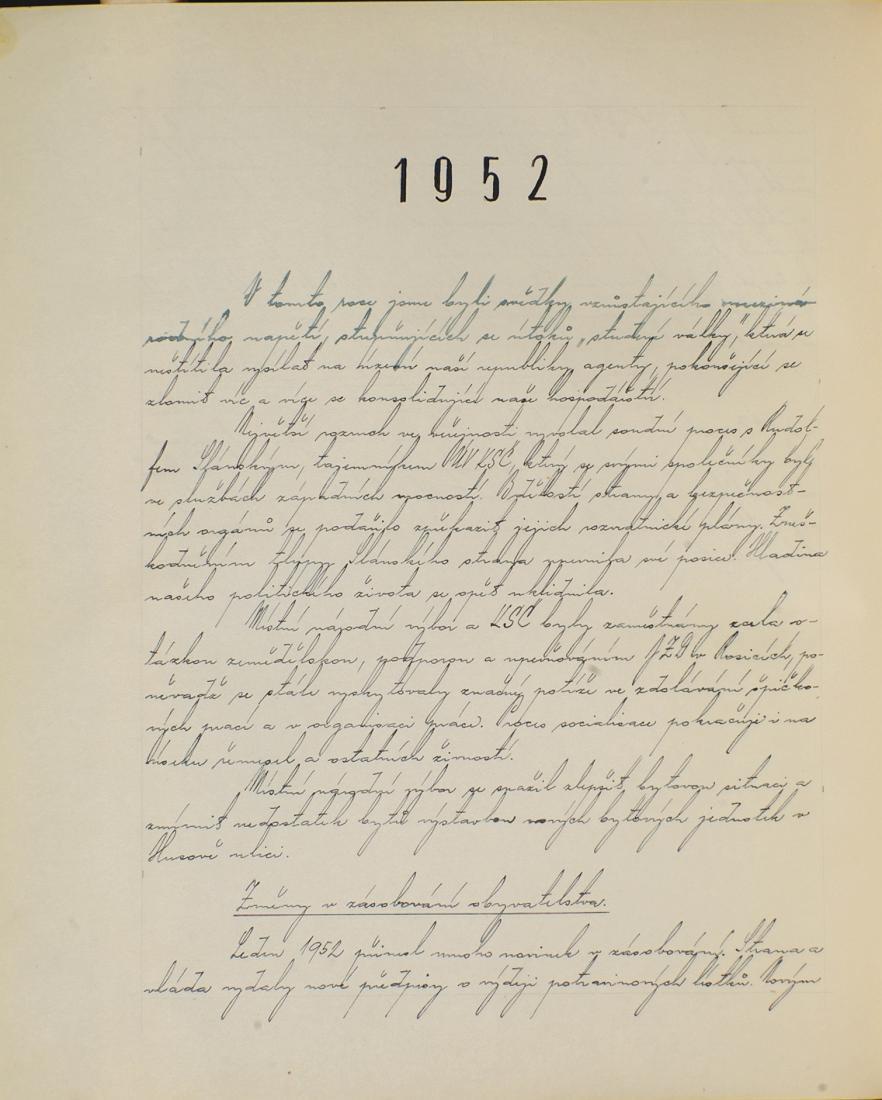 1952
V tomto roce jsme byli svědky vzrůstajícího meziná-
rodního napětí, stupňujících se útoků „studené války," která se
neštítila vysílat na území naší republiky agenty, pokoušející se
zlomit víc a více se konsolidující naše hospodářství.
Největší rozruch ve veřejnosti vyvolal soudní proces s Rudol-
fem Slánským, tajemníkem ÚV KSČ, který se svými společníky byl
ve službách západních mocností. Bdělostí strany a bezpečnost-
ních orgánů se podařilo překazit jejich rozvratnické plány. Zneš-
kodněním tlupy Slánského strana upevnila své posice. Hladina
našeho politického života se opět uklidnila.
Místní národní výbor a KSČ byly zaměstnány zcela o-
tázkou zemědělskou, podporou a upevňováním JZD v Rosicích, po-
něvadž se stále vyskytovaly značné potíže ve zdolávání špičko-
vých prací a v organisaci práce. Proces socialisace pokračuje i na
úseku řemesel a ostatních živností.
Místní národní výbor se snažil zlepšit bytovou situaci a
zmírnit nedostatek bytů výstavbou nových bytových jednotek v
Husově ulici.
Změny v zásobování obyvatelstva.
Leden 1952 přinesl mnoho novinek v zásobování. Strana a
vláda vydaly nové předpisy o výdeji potravinových lístků. Novým